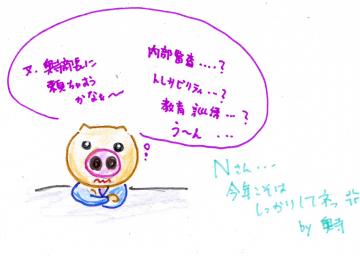 又、奥寺部長に
頼んじゃおう
かなぁ〜
内部審査....?
トレサビリティ...?
教育訓練...?
う〜ん...
Nさん...
今年こそは
しっかりしてネっ
by 奥寺